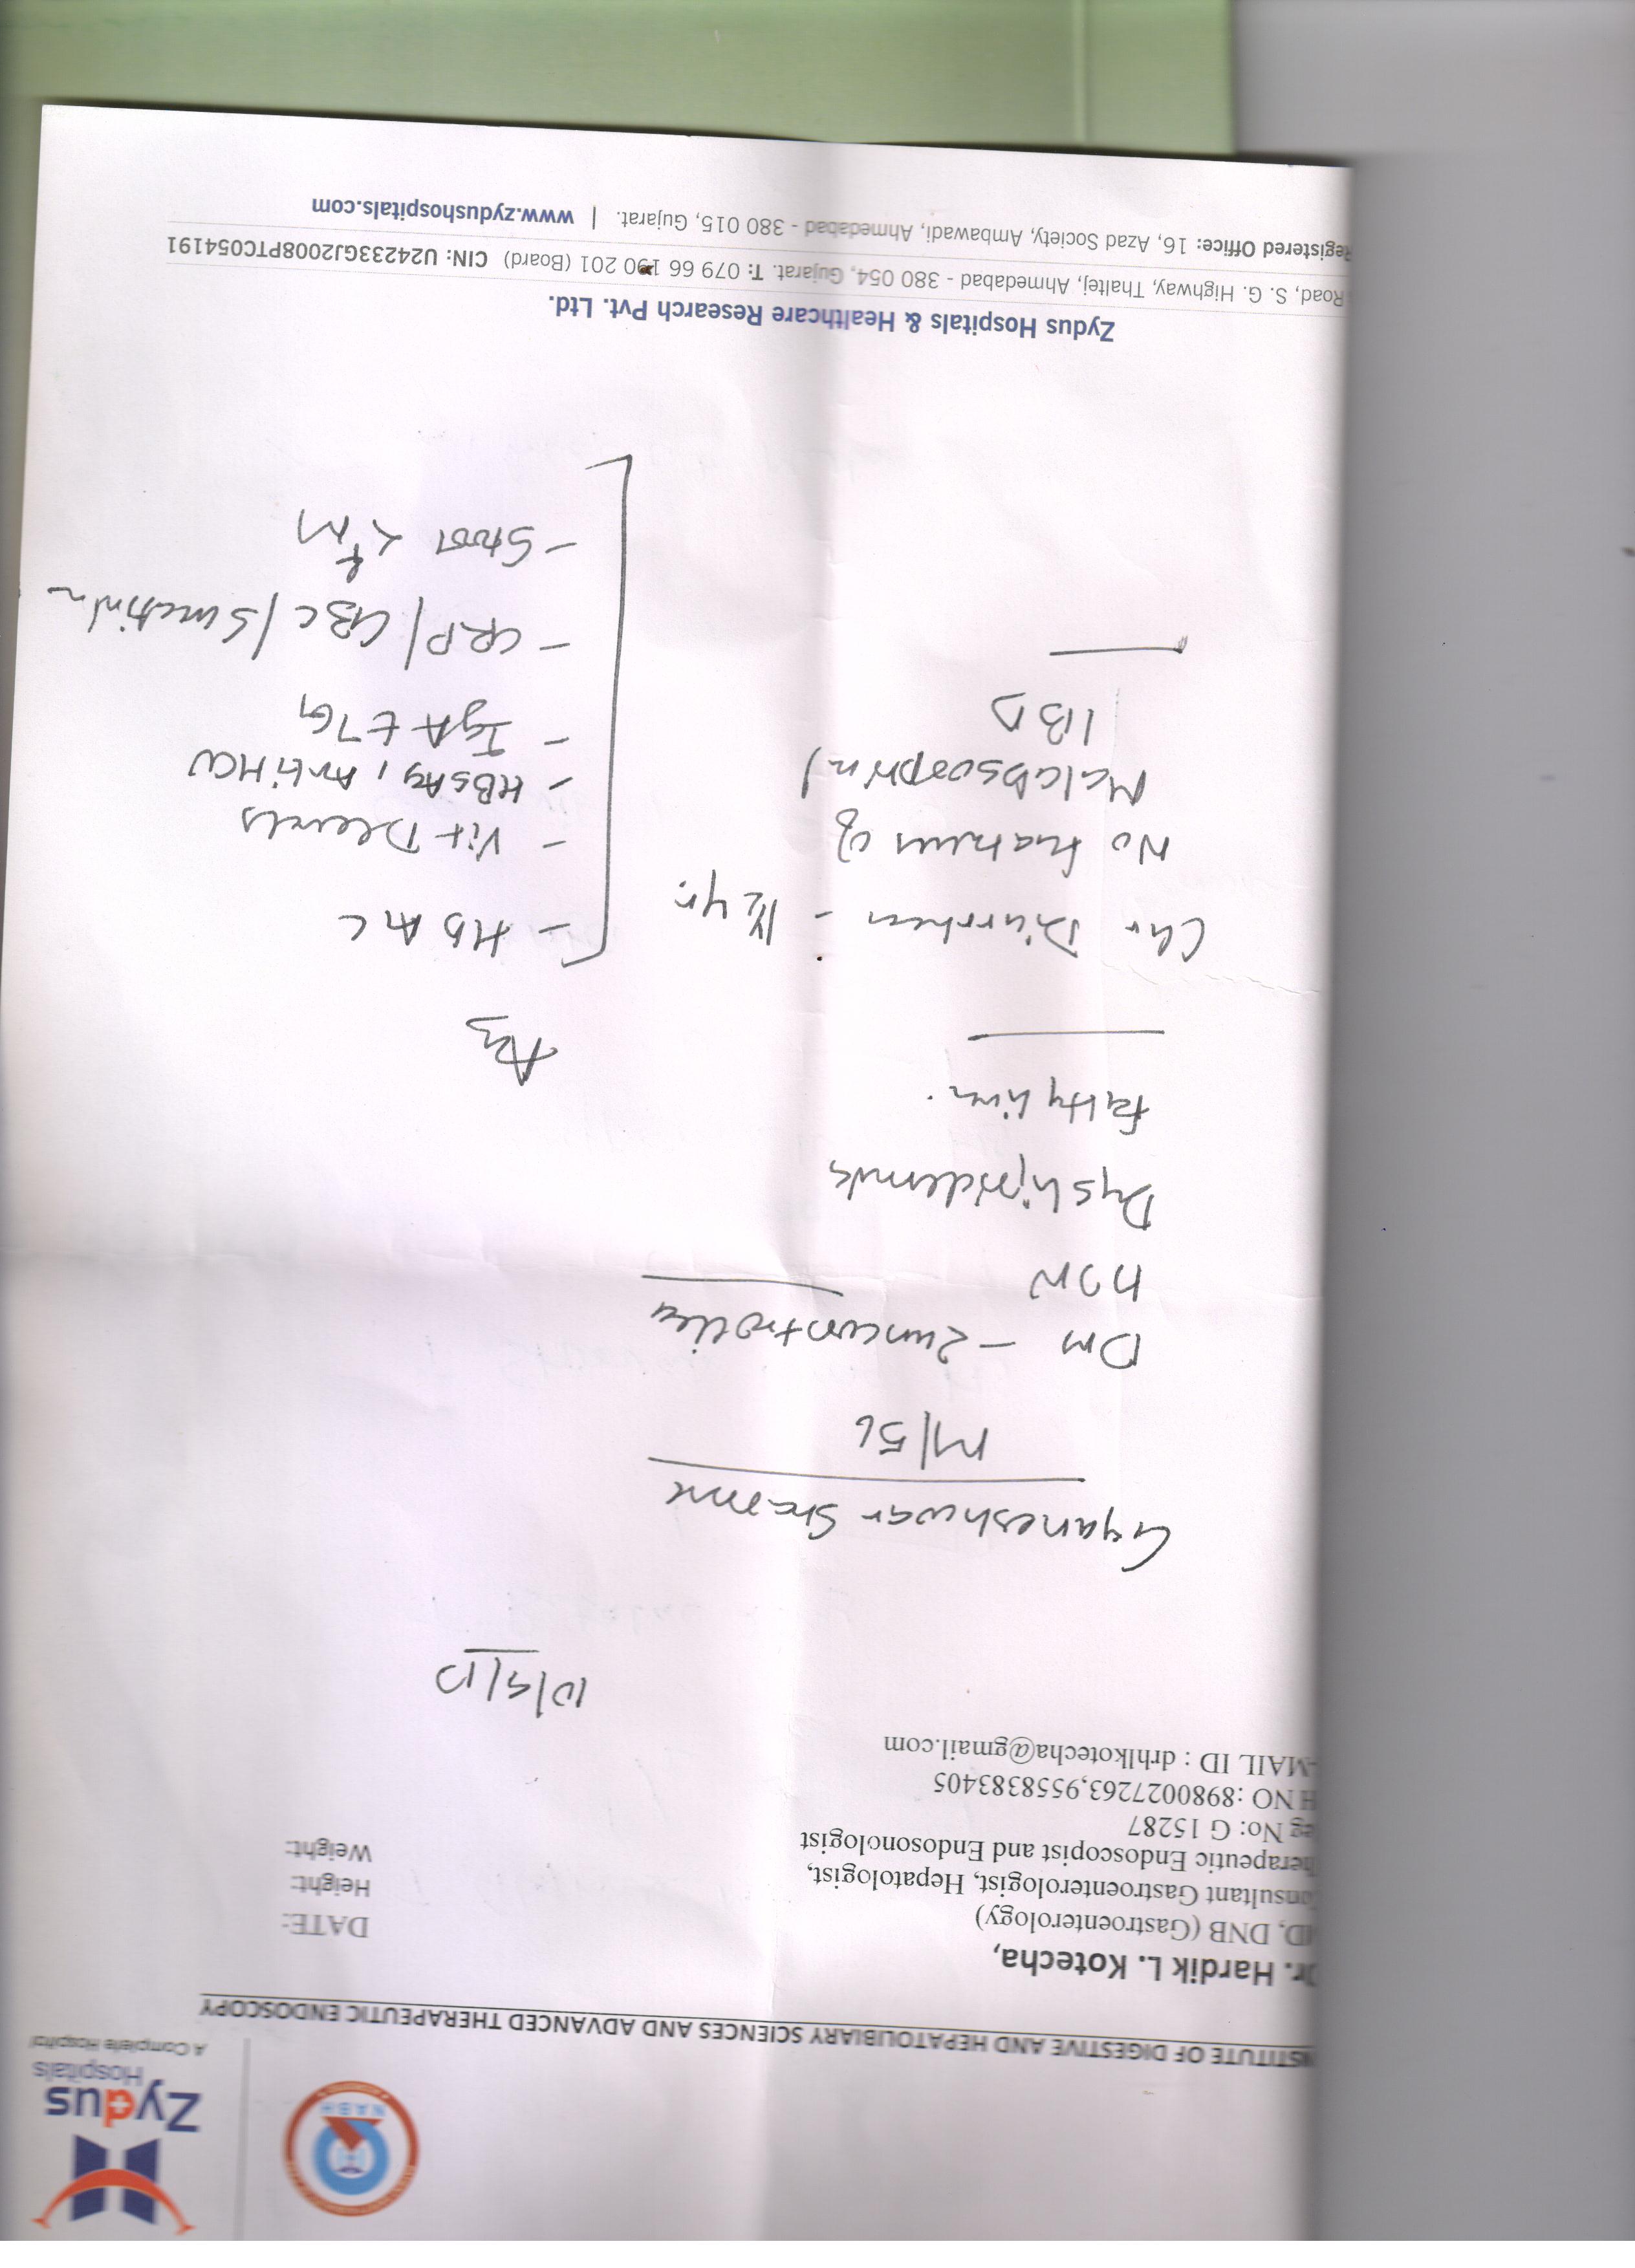 Zydus
Hospitals
A Complete Hospital
NABH
NSTITUTE OF DIGESTIVE AND HEPATOLIBIARY SCIENCES AND ADVANCED THERAPEUTIC ENDOSCOPY
Dr. Hardik L. Kotecha,
MD, DNB (Gastroenterology)
Consultant Gastroenterologist, Hepatologist,
Therapeutic Endoscopist and Endosonologist
eg No: G 15287
H NO :8980027263,9558383405
-MAIL ID : drhlkotecha@gmail.com
DATE:
Height:
Weight:
Gyaneshwar
M/56
DM - uncontrolled
Dyslipidemia
Fatty liver.
Chr Diarrhea - 1½ yr.
No features of
Malabsorption/
IBD
Adv
- HbA1c
- Vit D levels
- HBsAg, Anti HCV
- IgA tTG
- CRP/CBC/S creatinin
- Stool
Zydus Hospitals & Healthcare Research Pvt. Ltd.
Road, S. G. Highway, Thaltej, Ahmedabad - 380 054, Gujarat. T: 079 66 190 201 (Board) CIN: U24233GJ2008PTC054191
Registered Office: 16, Azad Society, Ambawadi, Ahmedabad - 380 015, Gujarat. | www.zydushospitals.com